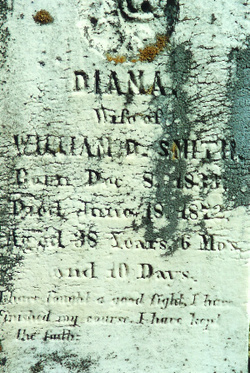 DIANA.
Wife of
WILLIAM D. SMITH.
Born Dec. 8, 1833.
Died June 18, 1872.
Aged 38 Years, 6 Mos.
and 10 Days.
I have fought a good fight, I have
finished my course, I have kept
the faith.